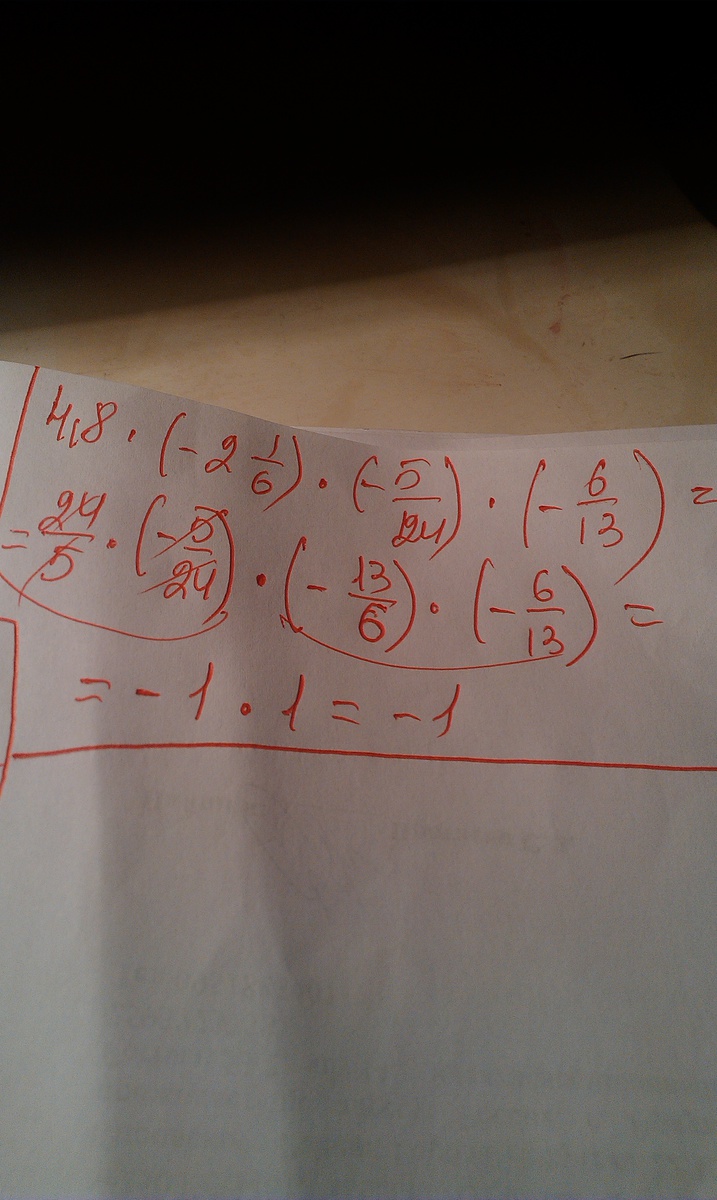 4,8 · (-2 1/6) · (-5/24) · (-6/13) =
= 24/5 · (-5/24) · (-13/6) · (-6/13) =
= -1 · 1 = -1